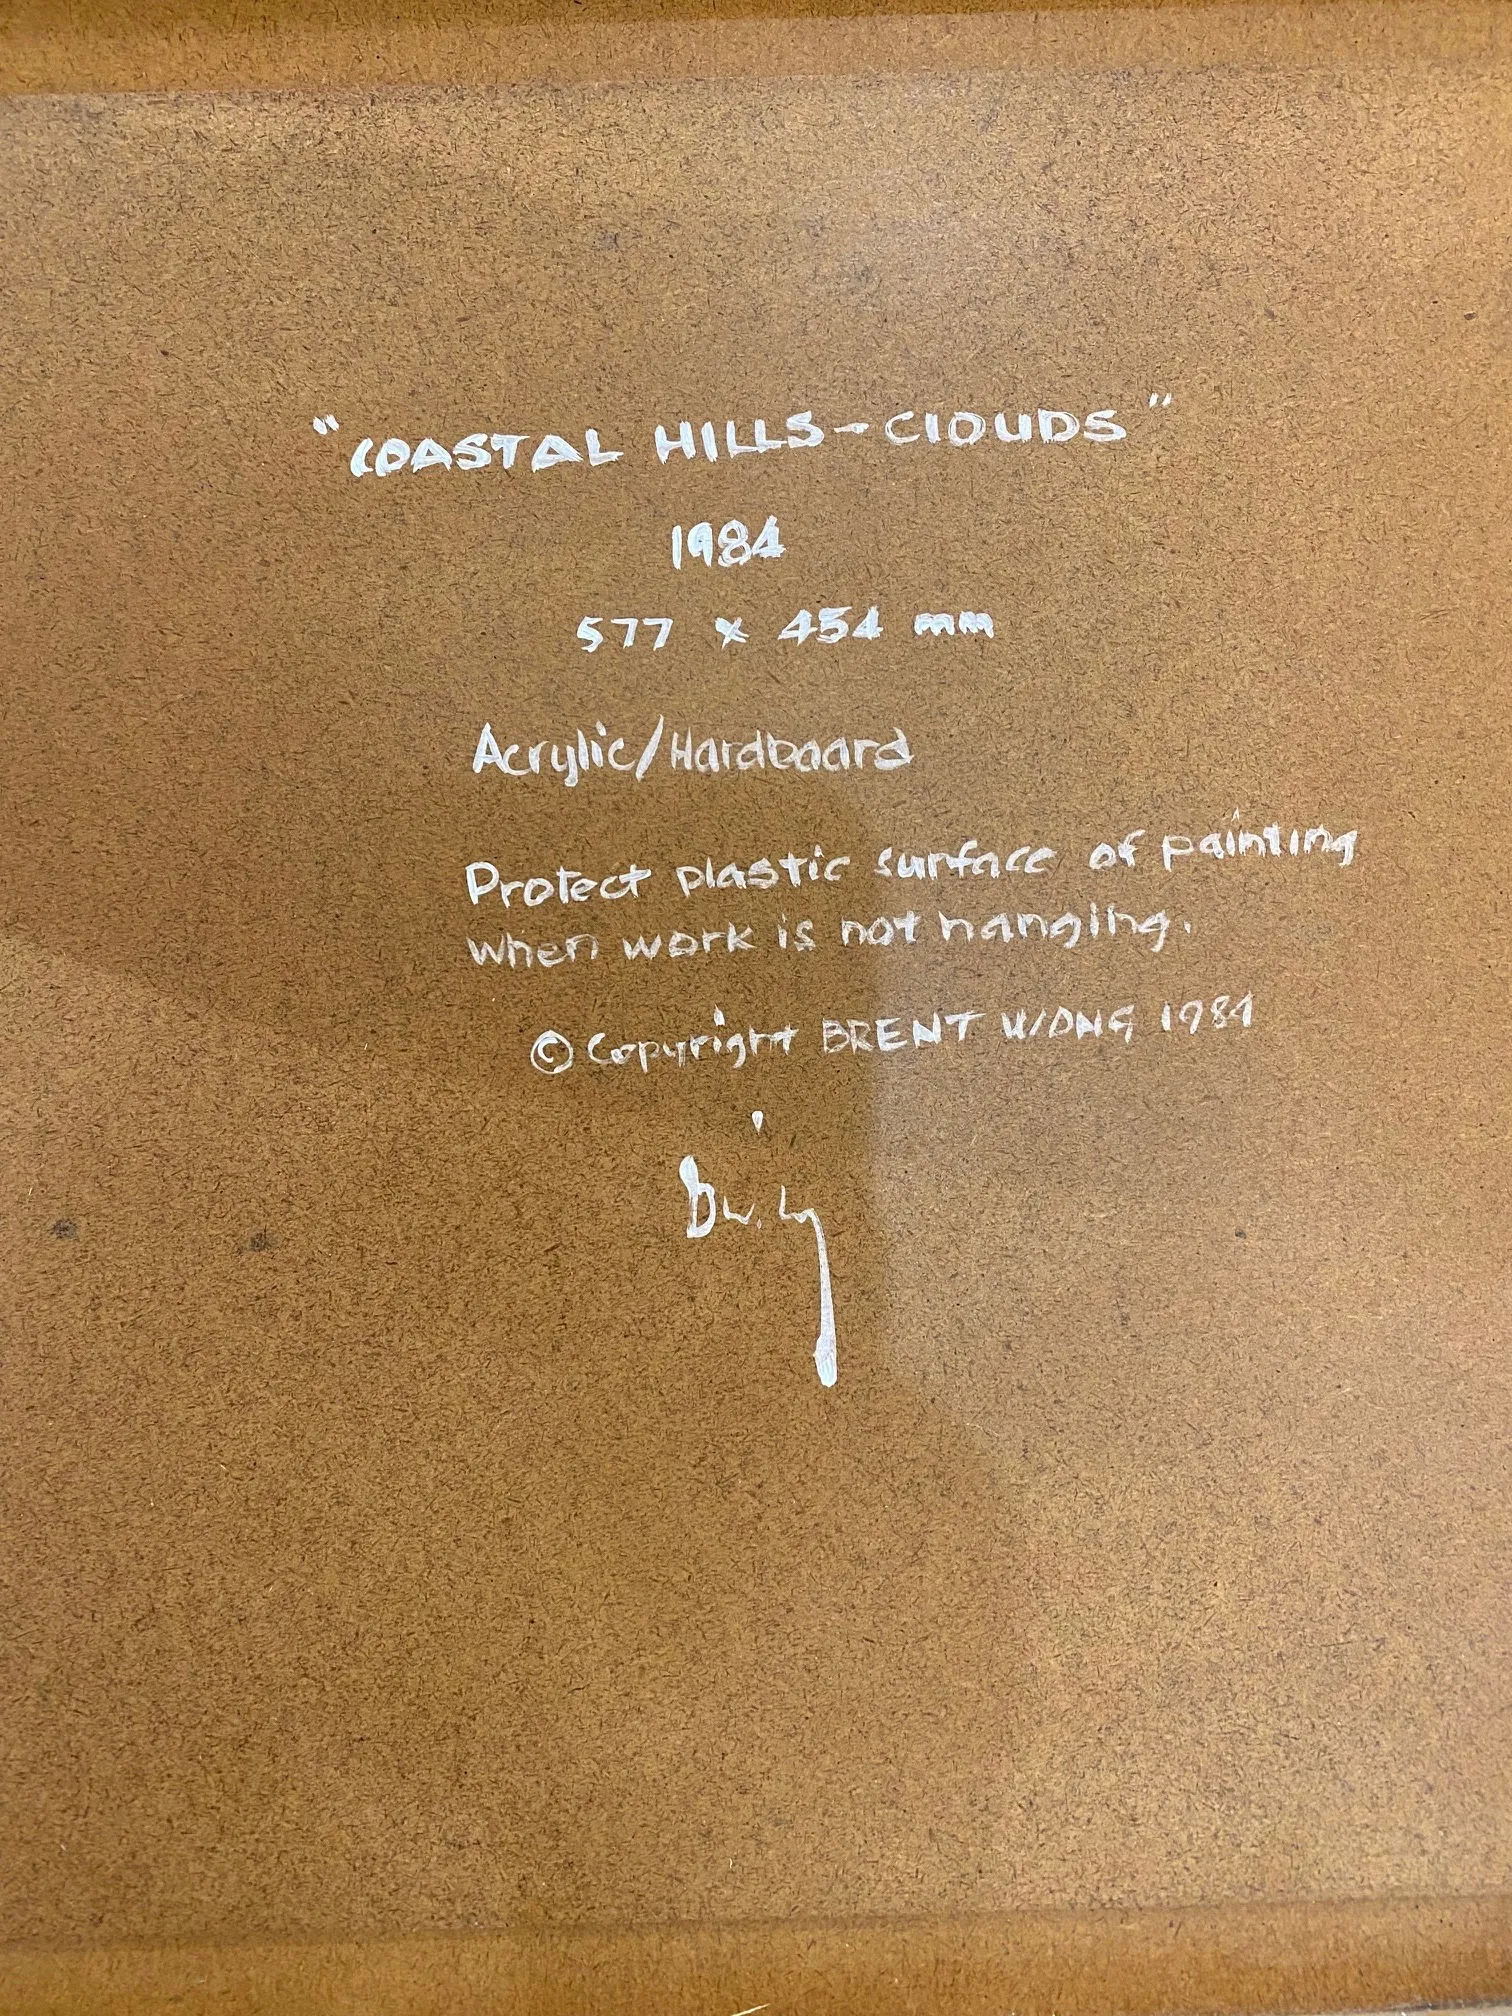 "COASTAL HILLS-CLOUDS"
1984
577 x 454 mm
Acrylic/Hardboard
Protect plastic surface of painting
when work is not hanging.
© Copyright BRENT WONG 1984